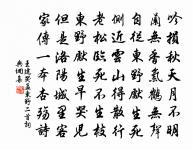 吟損秋天月不明
蘭無香氣鶴無聲
自從東野先生死
側近雲山得散行
老松臨死不生枝
東野先生早哭兒
但是洛陽城裏客
家傳一本杏殤詩
王建詩哭孟東野二首詞
典網集